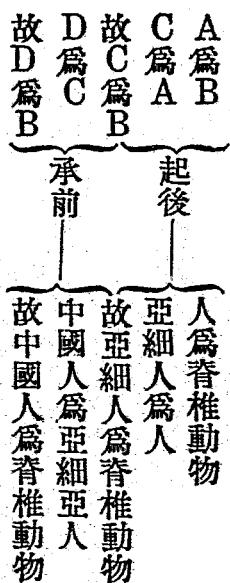 A爲B
C爲A
故C爲B
D爲C
故D爲B
起後
承前
人爲脊椎動物
亞細人爲人
故亞細人爲脊椎動物
中國人爲亞細亞人
故中國人爲脊椎動物